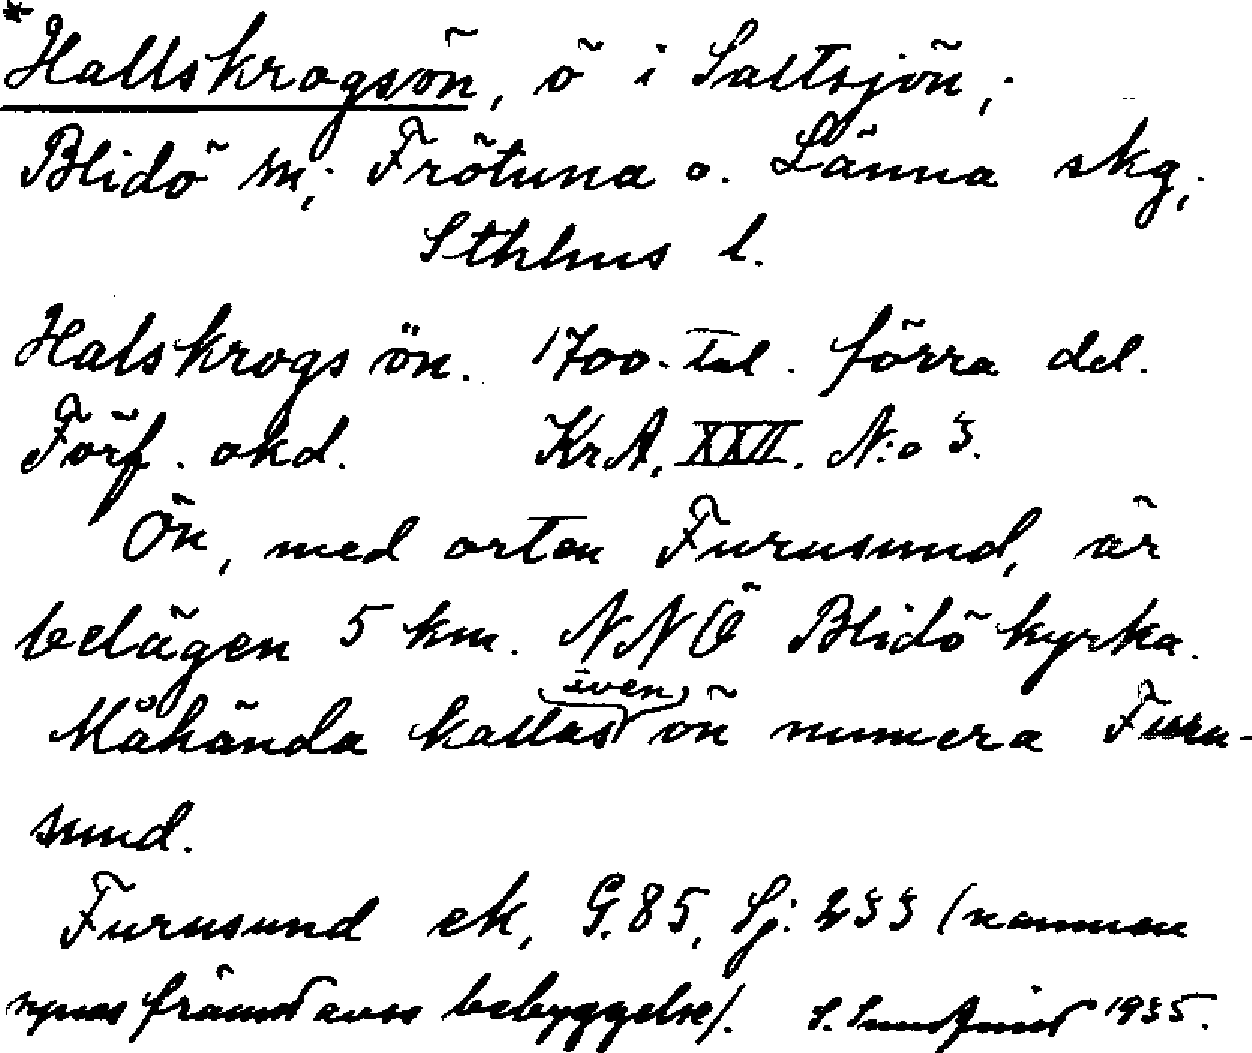 *Hallskrogsön, ö i Saltsjön,
Blidö sn; Frötuna o. Länna skg,
Sthlms l.
Halskrogs ön. 1700-tal. förra del.
Förf. okd. KrA, XXII. N:o 3.
Ön, med orten Furusund, är
belägen 5 km. NNÖ Blidö kyrka.
Måhända kallas även ön numera Furu-
sund.
Furusund ek, G.85, Sj: 233 (namnen
synas främst avse bebyggelse). 1935.